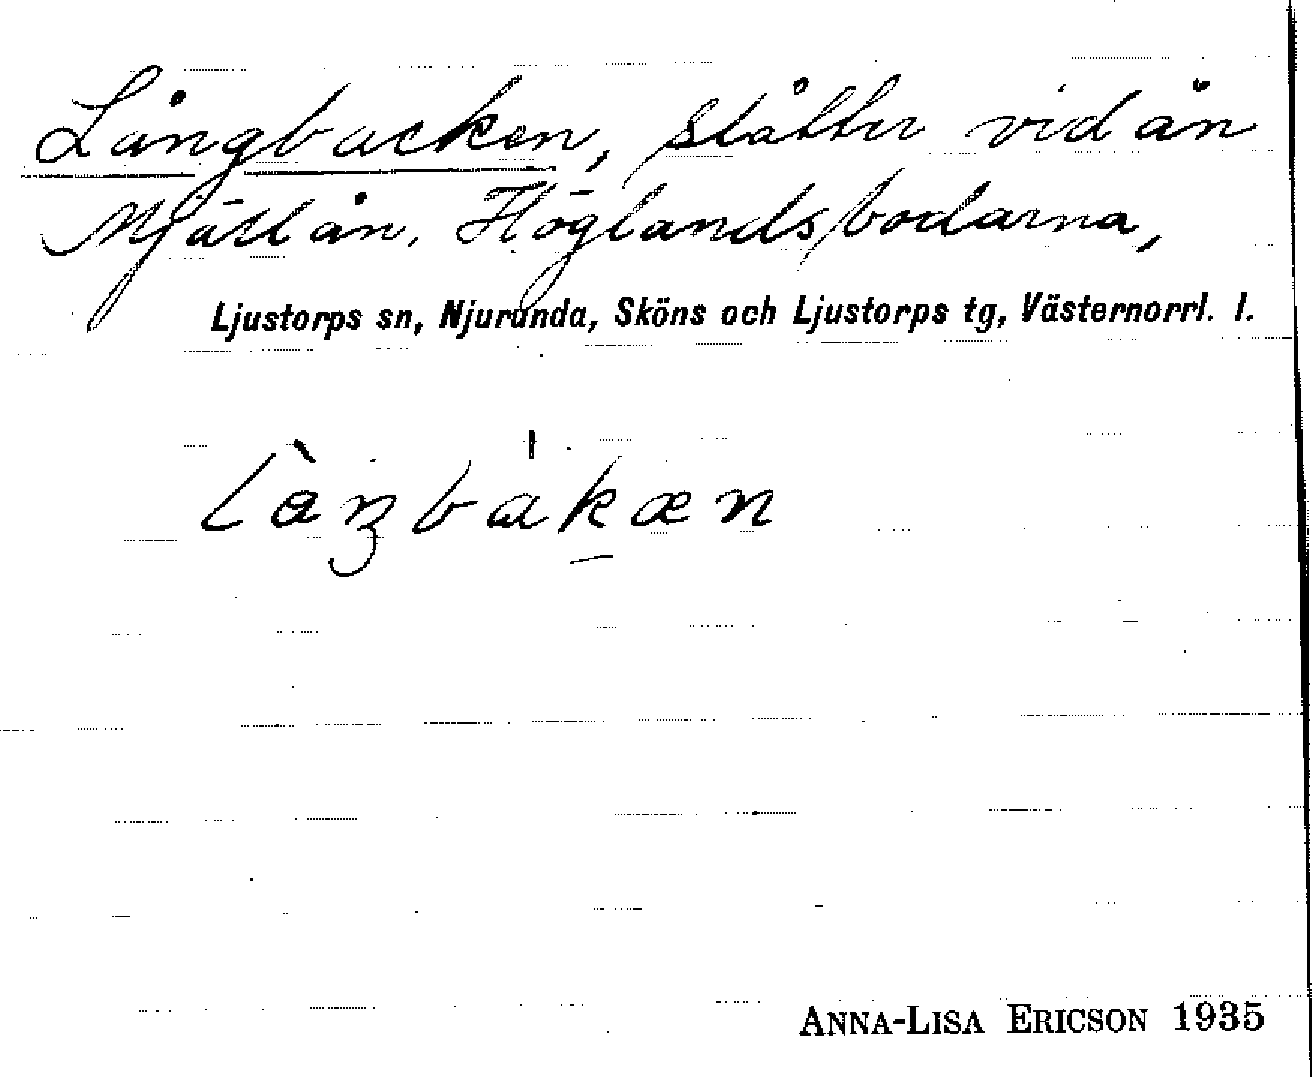 Långbacken, slåtter vid ån
Mjällån. Höglandsbodarna,
Ljustorps sn, Njurunda, Sköns och Ljustorps tg, Västernorrl. l.
làŋbákæn
ANNA-LISA ERICSON 1935